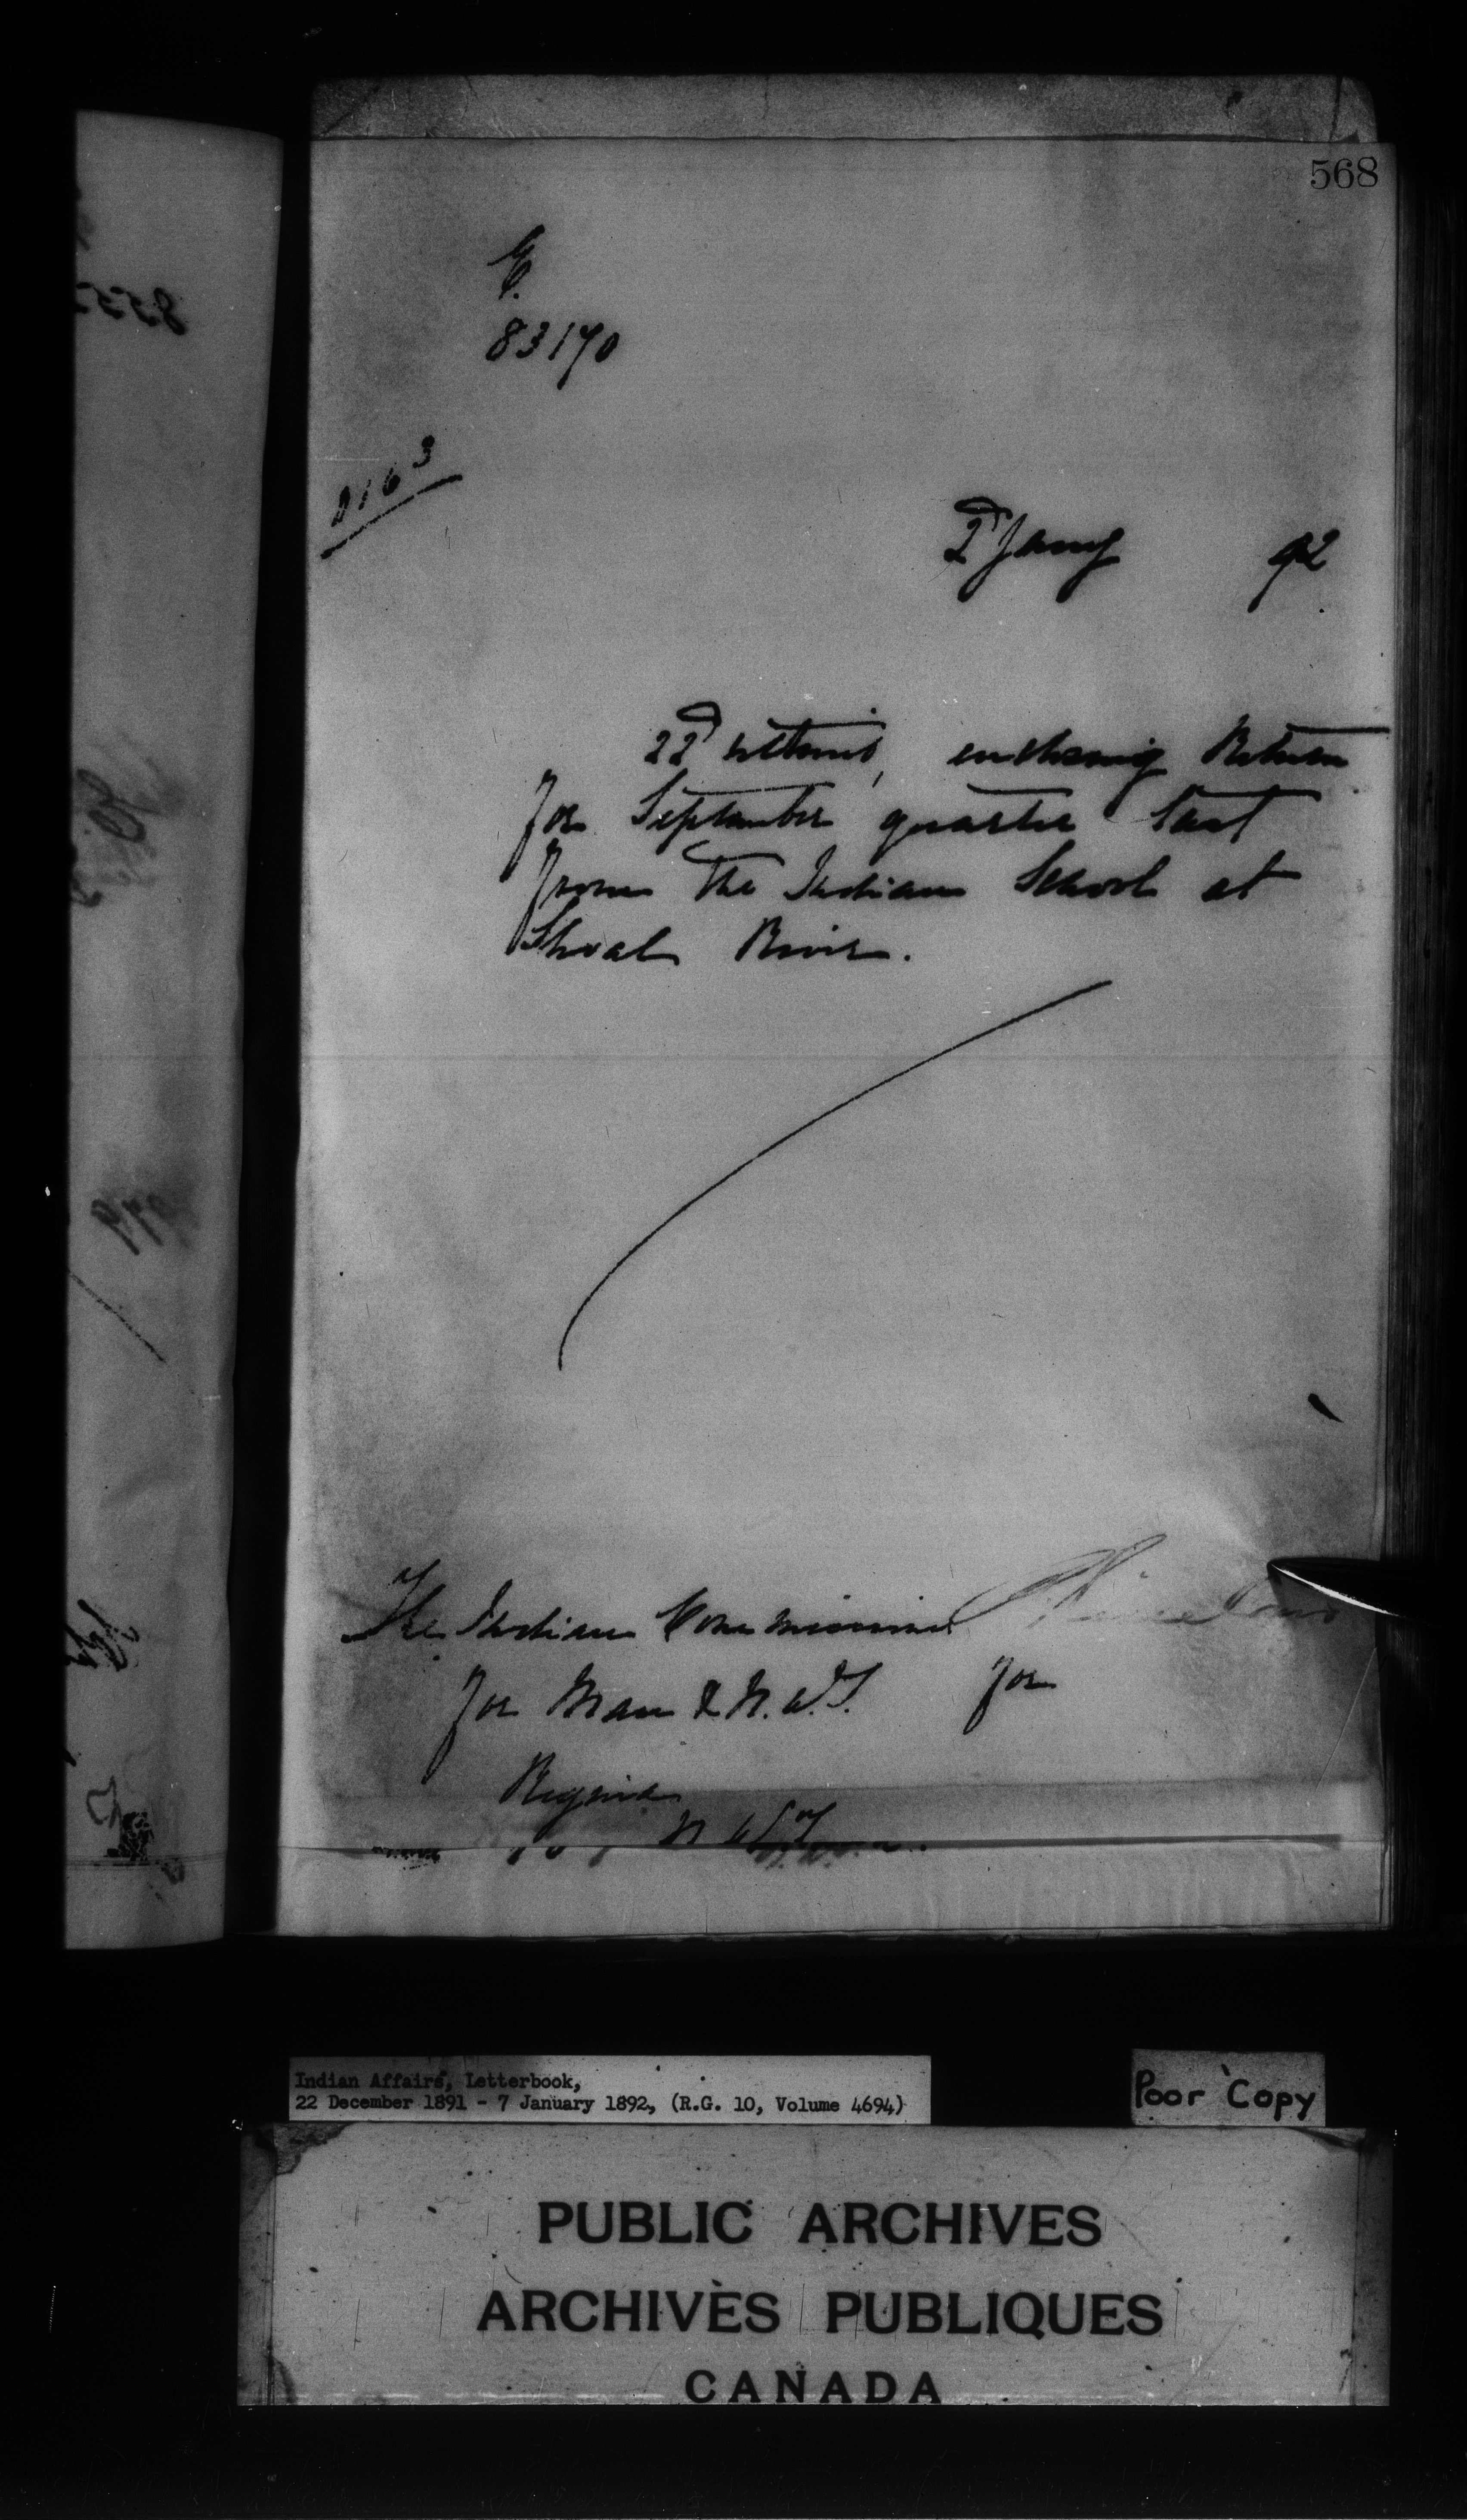 568
83170
2d Jany 92
22d ultimo, enclosing Return
for September quarter last
from the Indian School at
Shoal River.
The Indian Commissioner
for Man & N.W.T. for
Regina
N W T
Indian Affairs, Letterbook,
22 December 1891 - 7 January 1892, (R.G. 10, Volume 4694)
Poor Copy
PUBLIC ARCHIVES
ARCHIVES PUBLIQUES
CANADA